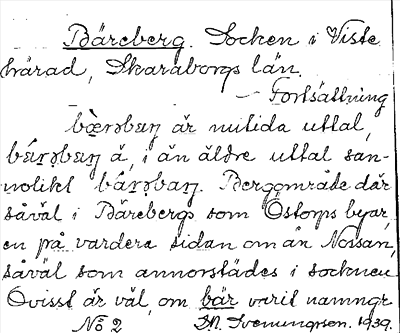 Bäreberg. Socken i Viste
härad, Skaraborgs län.
— Fortsättning
bœ̀rəbærj är nutida uttal,
bárəbarj å, i än äldre uttal san-
nolikt bárəbarj. Bergområde där
såväl i Bärebergs som Östorps byar,
en på vardera sidan om ån Nossan,
såväl som annorstädes i socknen
Ovisst är väl, om bär varit namngr
No 2 Sn. Svenungsson. 1939.